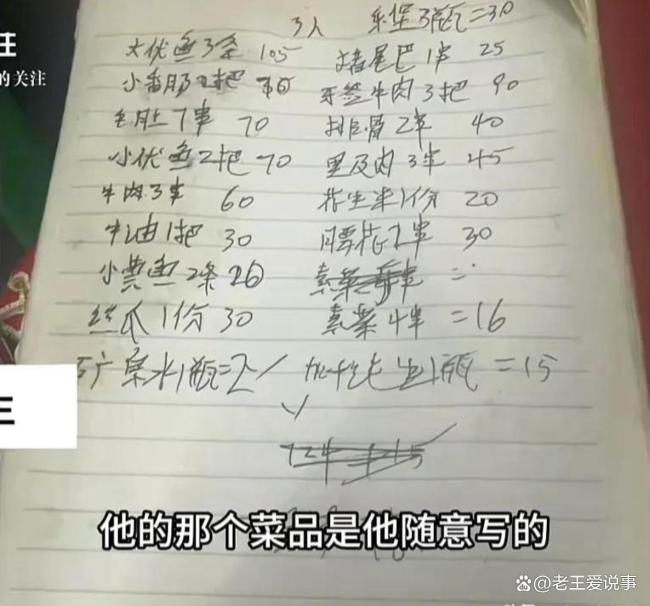 注
的关注
3人 乐堡3瓶=30
大优鱼3条 105 猪尾巴1串 25
小香肠2把 牙签牛肉3把 90
毛肚7串 70 排骨2串 40
小优鱼2把 70 里及肉3串 45
牛肉3串 60 花生米1份 20
牛油1把 30 腰花2串 30
小黄鱼2条 26 素菜
丝瓜1份 30 素菜4串 =16
矿泉水1瓶=2 1瓶 =15
三
他的那个菜品是他随意写的
@老王爱说事